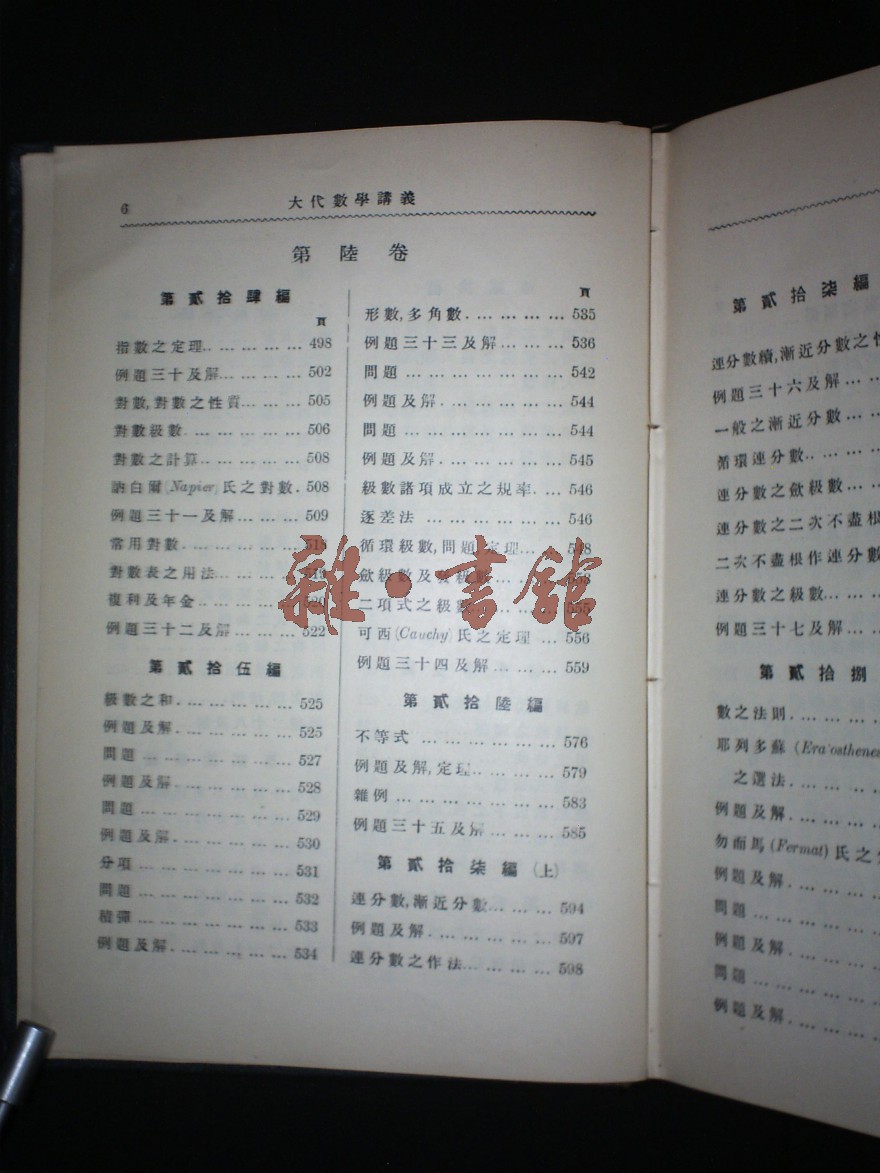 6
大代數學講義
第陸卷
第貳拾肆編
頁
指數之定理.. … … … … 498
例題三十及解… … … … 502
對數,對數之性質… … … 505
對數級數. … … … … … 506
對數之計算.. … … … … 508
訥白爾(Napier)氏之對數. 508
例題三十一及解… … … 509
常用對數. … … … …
對數表之用法… … …
複利及年金.. … … …
例題三十二及解… … … 522
第貳拾伍編
級數之和. … … … … … 525
例題及解. … … … … … 525
問題 … … … … … … 527
例題及解. … … … … … 528
問題 … … … … … … 529
例題及解. … … … … … 530
分項 … … … … … … 531
問題 … … … … … … 532
積彈 … … … … … … 533
例題及解. … … … … … 534
頁
形數,多角數. … … … … 535
例題三十三及解… … … 536
問題 … … … … … … 542
例題及解. … … … … … 544
問題 … … … … … … 544
例題及解. … … … … … 545
級數諸項成立之規率. … 546
逐差法 … … … … … 546
循環級數,問題,定理… … 548
歛級數及發級數… … … 553
二項式之級數 … … … 555
可西(Cauchy)氏之定理 … 556
例題三十四及解… … … 559
第貳拾陸編
不等式 … … … … … 576
例題及解,定理.. … … … 579
雜例 … … … … … … 583
例題三十五及解 … … … 585
第貳拾柒編(上)
連分數,漸近分數… … … 594
例題及解. … … … … … 597
連分數之作法… … … … 598
雜·書舘
第貳拾柒編
連分數積,漸近分數之
例題三十六及解… …
一般之漸近分數… …
循環連分數.. … …
連分數之歛級數… …
連分數之二次不盡根
二次不盡根作連分數
連分數之級數… …
例題三十七及解… …
第貳拾捌
數之法則. … … …
耶列多蘇(Era'osthene
之選法. … … …
例題及解. … … …
勿面馬(Fermat)氏之
例題及解. … … …
問題 … … … …
例題及解. … … …
問題 … … … …
例題及解. … … …